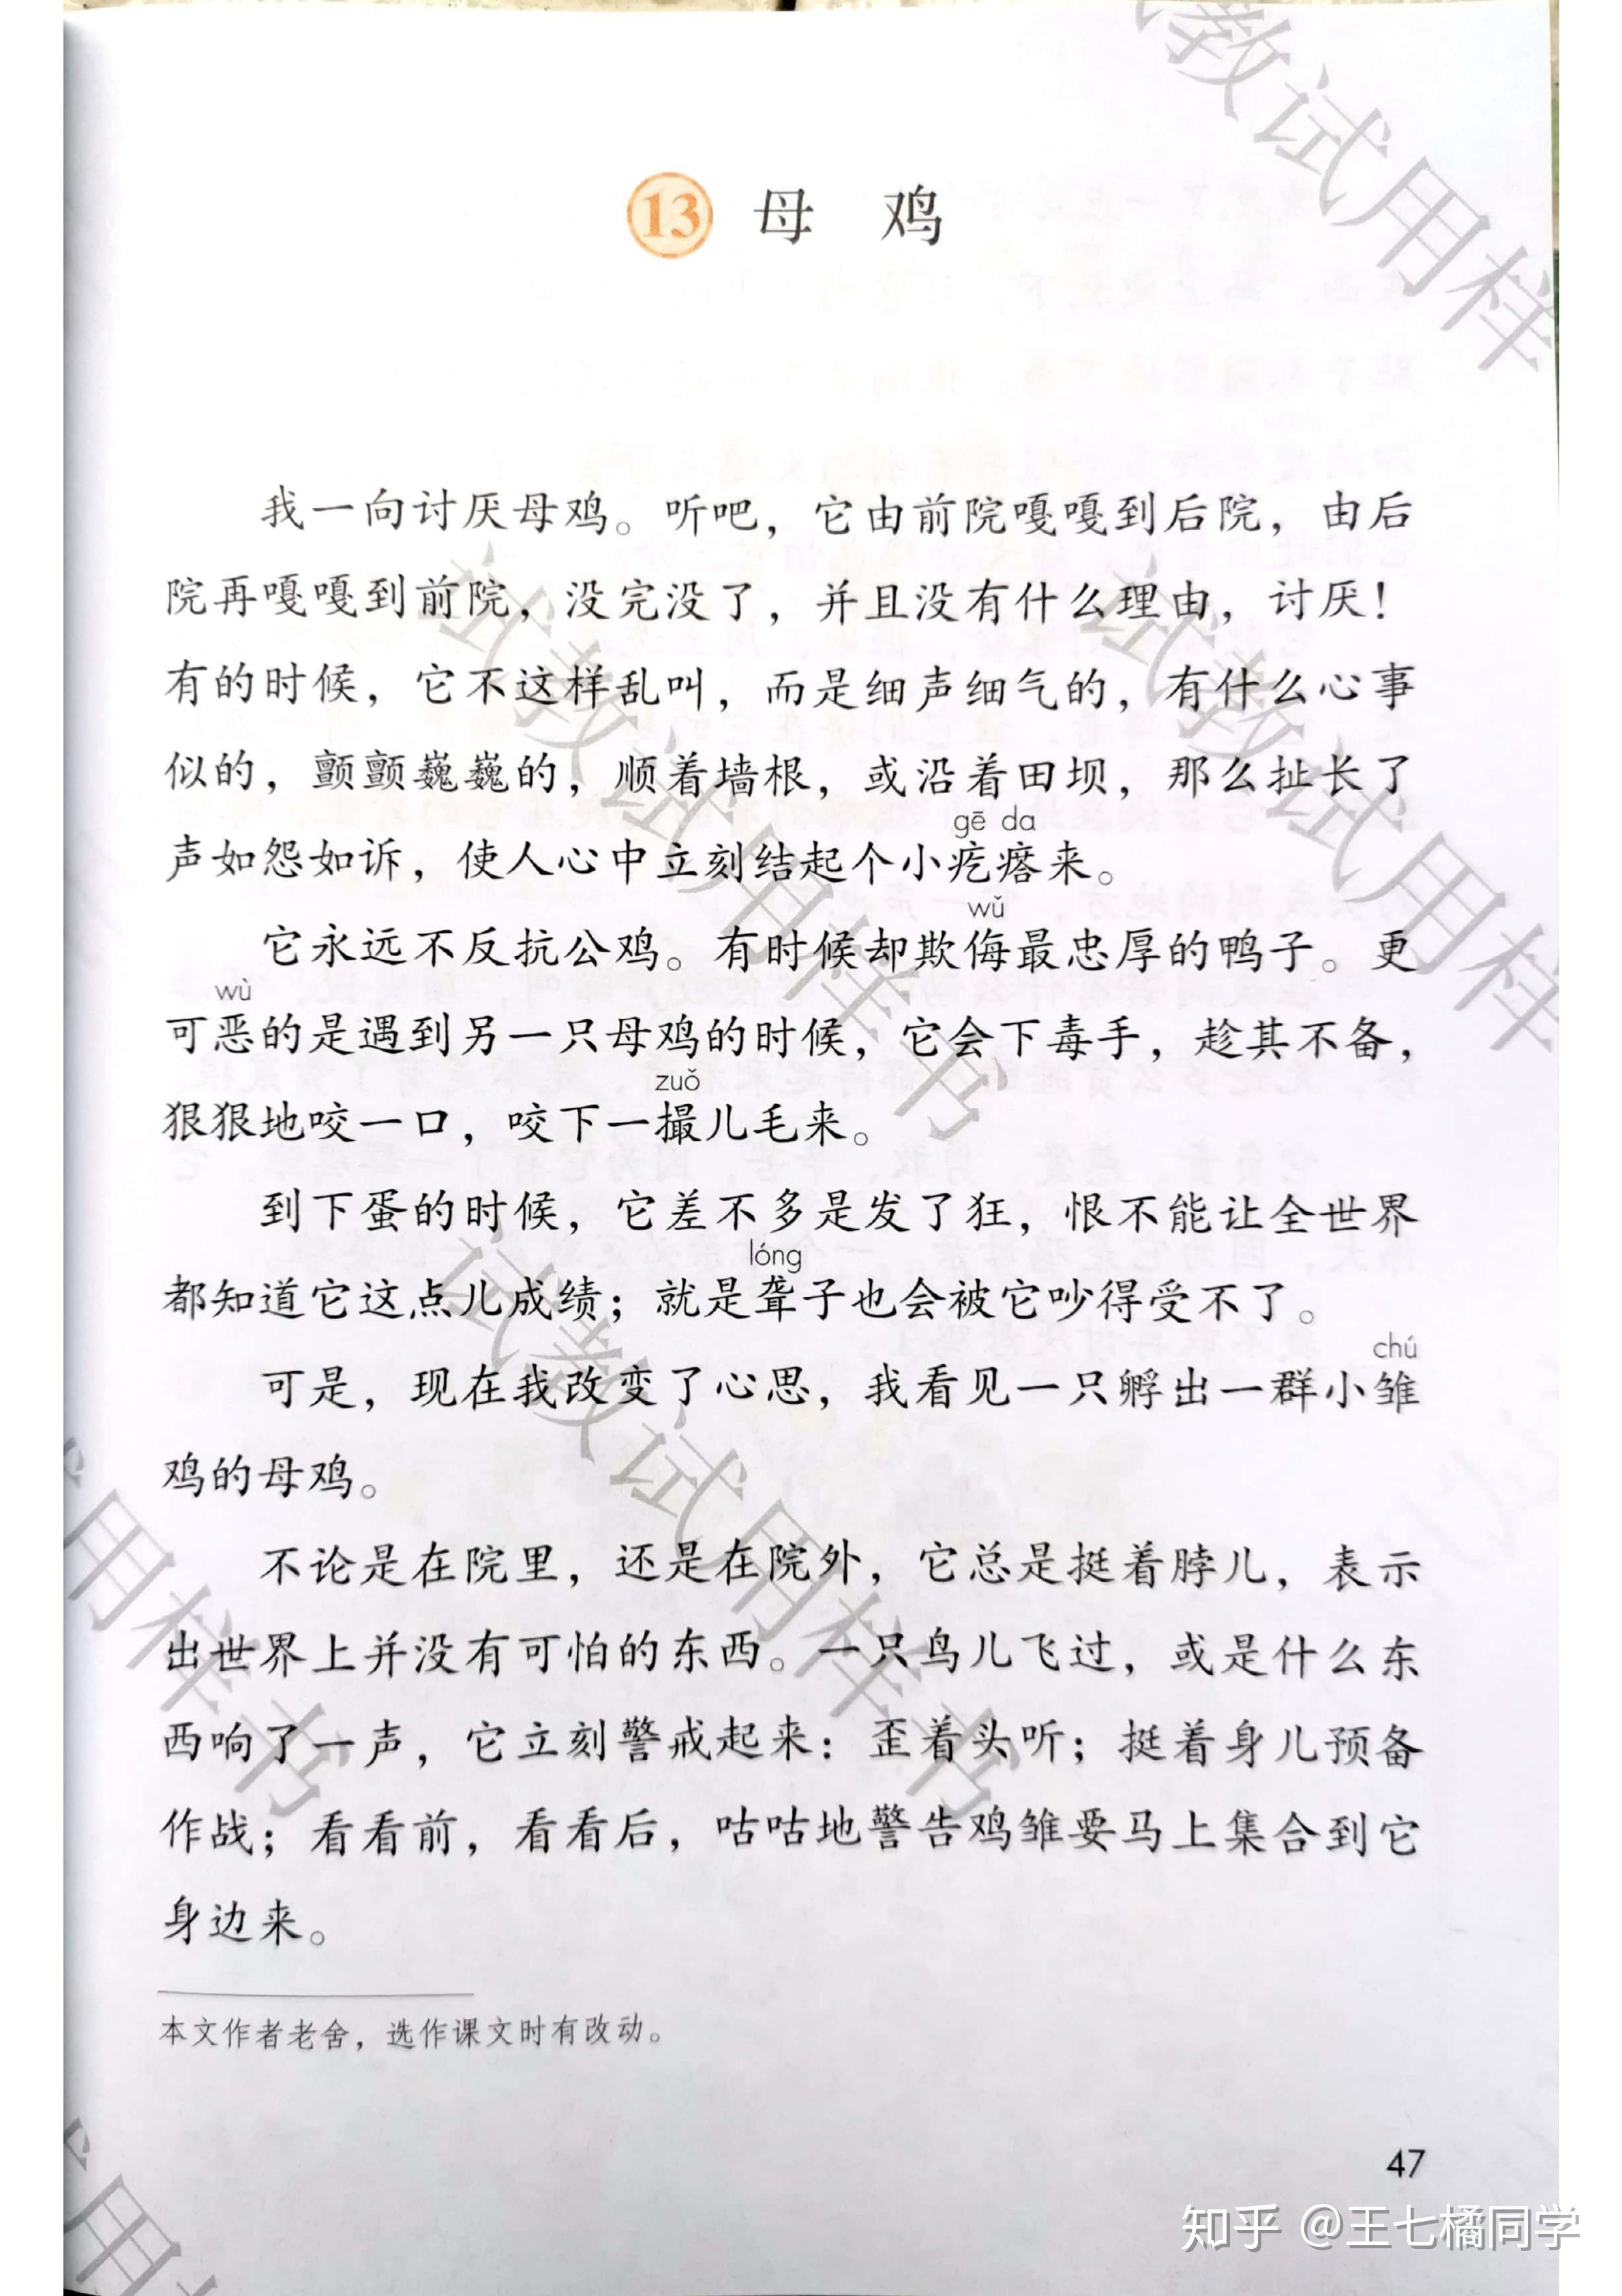 13 母 鸡
我一向讨厌母鸡。听吧，它由前院嘎嘎到后院，由后
院再嘎嘎到前院，没完没了，并且没有什么理由，讨厌！
有的时候，它不这样乱叫，而是细声细气的，有什么心事
似的，颤颤巍巍的，顺着墙根，或沿着田坝，那么扯长了
gē da
声如怨如诉，使人心中立刻结起个小疙瘩来。
wǔ
它永远不反抗公鸡。有时候却欺侮最忠厚的鸭子。更
wù
可恶的是遇到另一只母鸡的时候，它会下毒手，趁其不备，
zuǒ
狠狠地咬一口，咬下一撮儿毛来。
到下蛋的时候，它差不多是发了狂，恨不能让全世界
lóng
都知道它这点儿成绩；就是聋子也会被它吵得受不了。
chú
可是，现在我改变了心思，我看见一只孵出一群小雏
鸡的母鸡。
不论是在院里，还是在院外，它总是挺着脖儿，表示
出世界上并没有可怕的东西。一只鸟儿飞过，或是什么东
西响了一声，它立刻警戒起来：歪着头听；挺着身儿预备
作战；看看前，看看后，咕咕地警告鸡雏要马上集合到它
身边来。
本文作者老舍，选作课文时有改动。
47
知乎 @王七橘同学
教试用样
试教试用样书
试教试用样
试教试用样书
试用样书
试用样